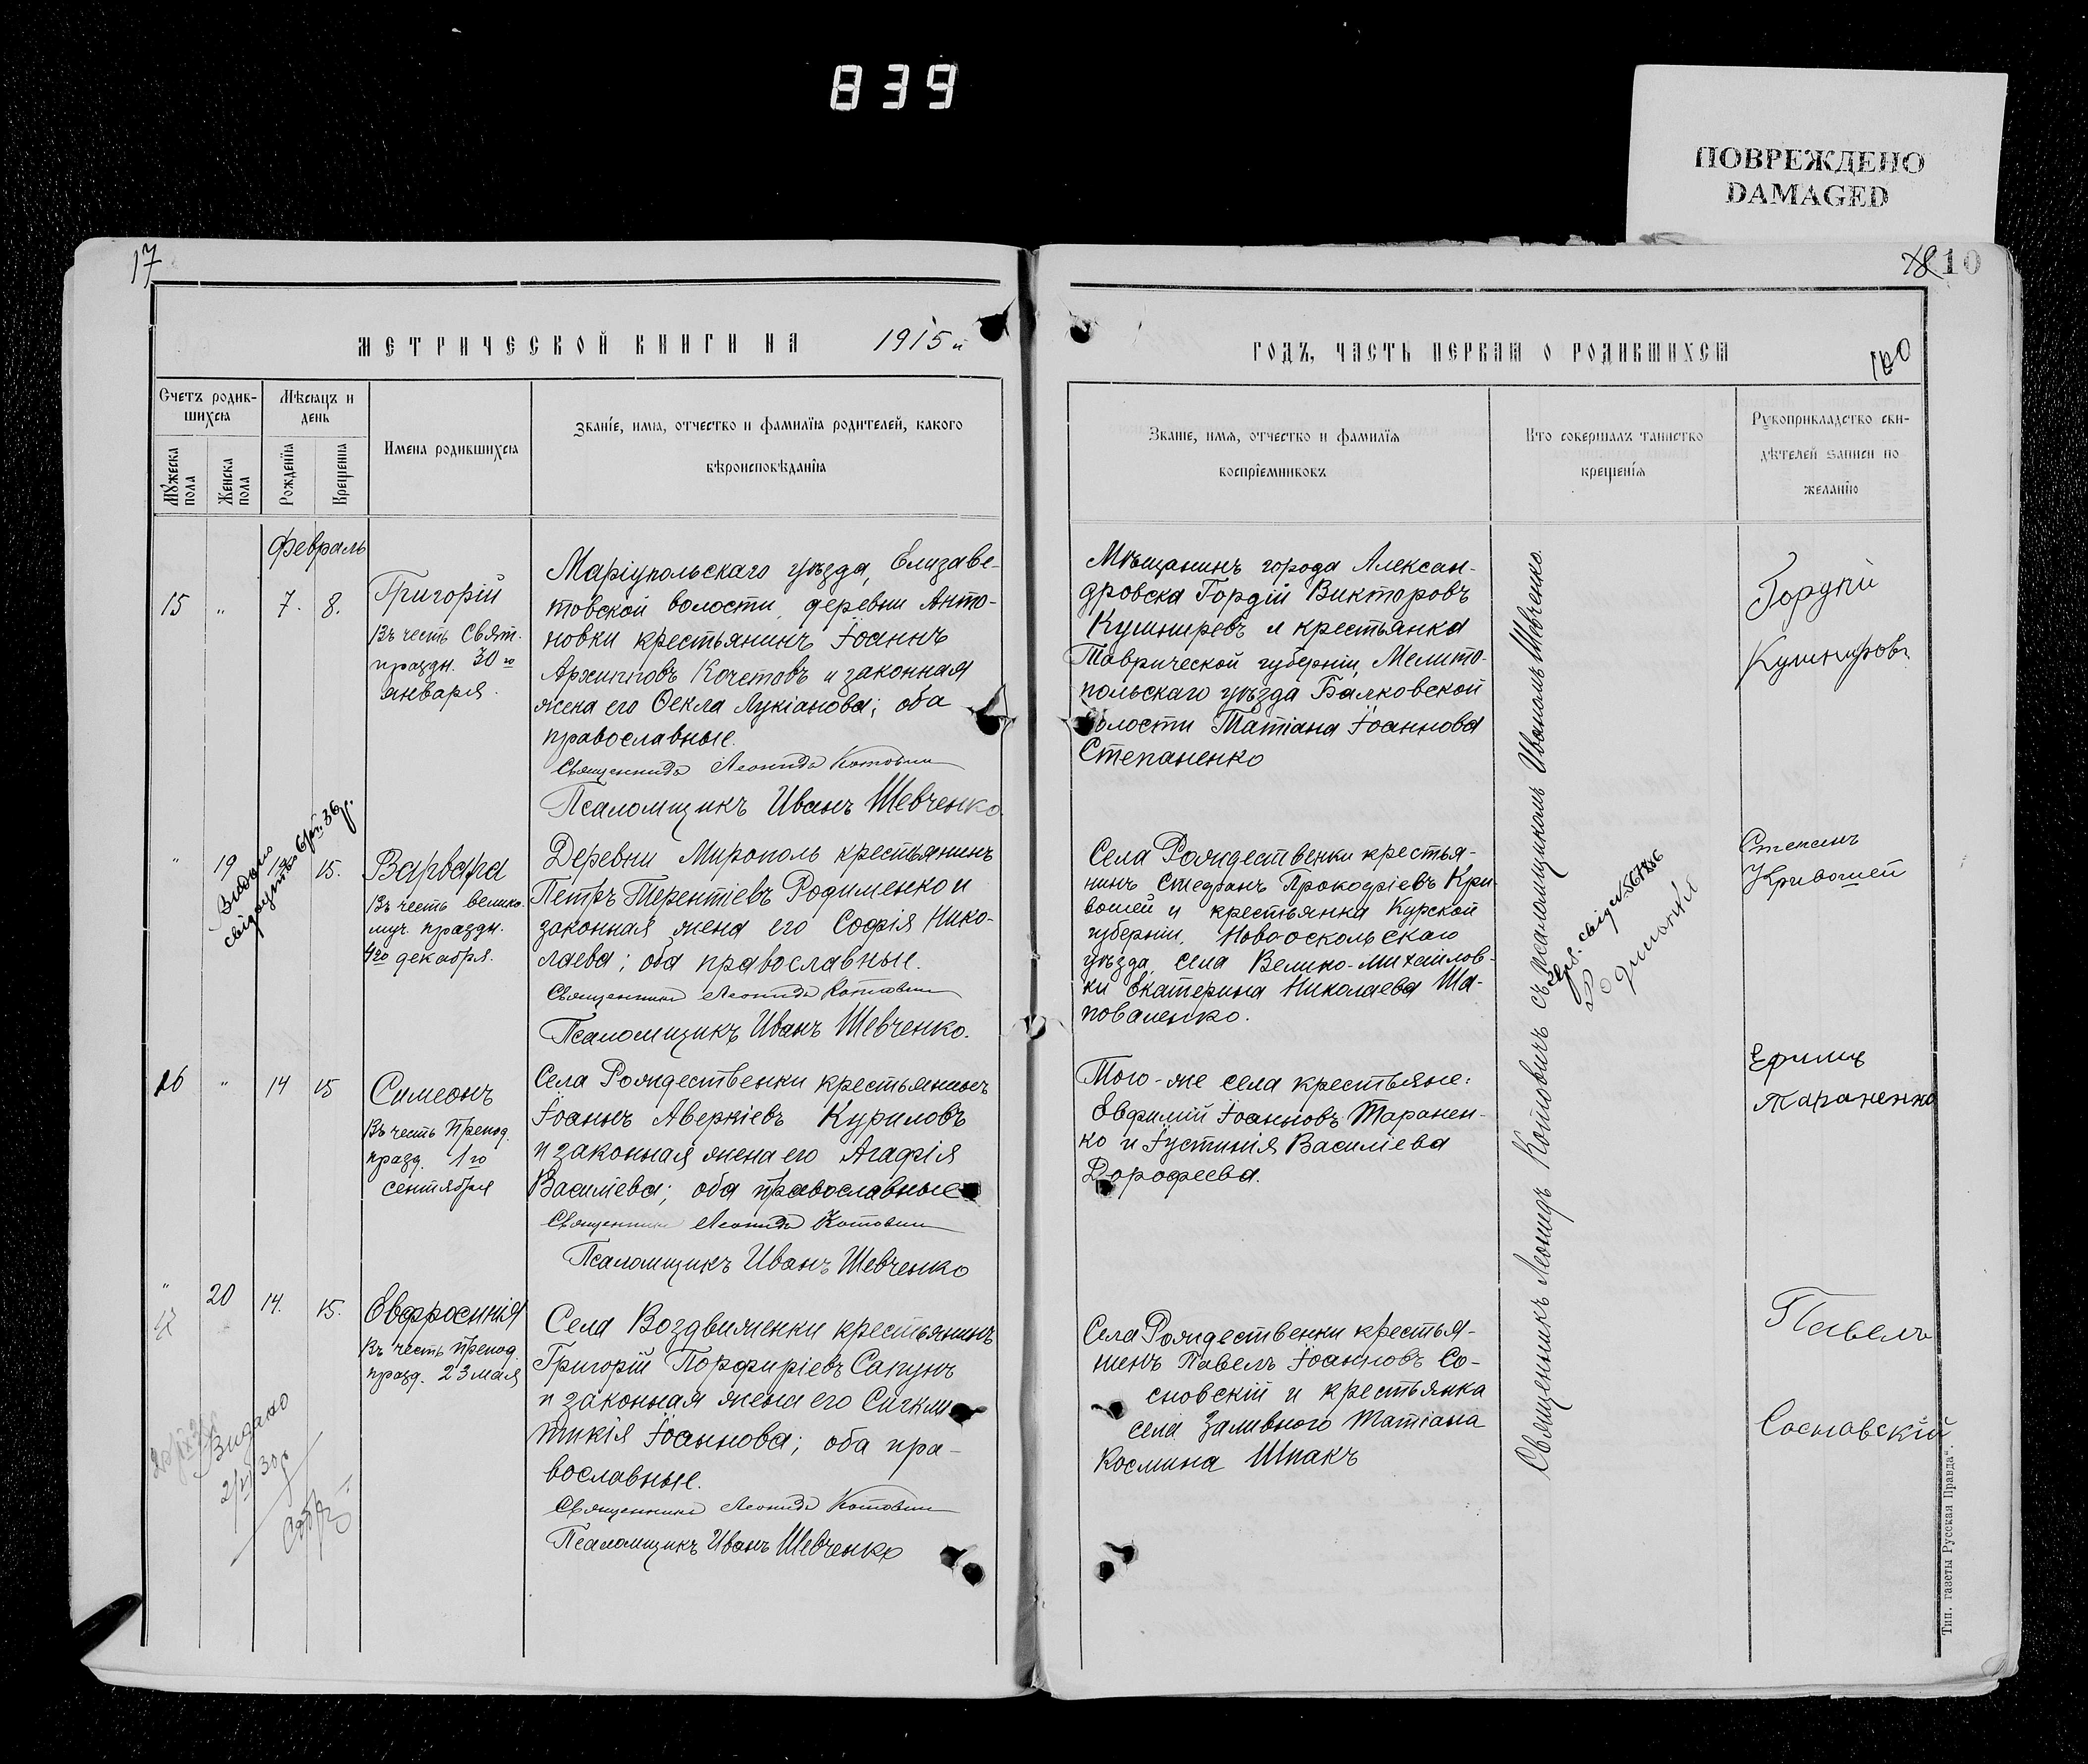 839
ПОВРЕЖДЕНО
DAMAGED
17
18 10
МЕТРИЧЕСКОЙ КНИГИ НА 1915 й
ГОДЪ, ЧАСТЬ ПЕРВАЯ О РОДИВШИХСЯ
100
Счетъ родив-
шихся
Мужеска пола
Женска пола
Мѣсяцъ и
день
Рожденїя
Крещенїя
Имена родившихся
Званїе, имя, отчество и фамилїя родителей, какого
вѣроисповѣданїя
Званїе, имя, отчество и фамилїя
воспрїемниковъ
Кто совершалъ таинство
крещенїя
Рукоприкладство сви-
дѣтелей записи по
желанїю
Февраль
15 " 7. 8.
Григорій
Въ честь Свят.
праздн. 30го
января.
Маріупольскаго уѣзда, Елизаве-
товской волости, деревни Анто-
новки крестьянинъ Іоаннъ
Архиповъ Кочетовъ и законная
жена его Ѳекла Лукіанова; оба
православные.
Священникъ Леонидъ Котович
Псаломщикъ Иванъ Шевченко.
Мѣщанинъ города Алексан-
дровска Гордій Викторовъ
Кушнировъ и крестьянка
Таврической губерніи, Мелито-
польскаго уѣзда Балковской
волости Татіана Іоаннова
Степаненко
Гордій
Кушнировъ
" 19 12. 15.
Видано
свідоцтво
36 р.
Варвара
Въ честь велико-
муч. праздн.
4го декабря.
Деревни Мирополь крестьянинъ
Петръ Терентіевъ Родименко и
законная жена его Софія Нико-
лаева; оба православные.
Священникъ Леонидъ Котович
Псаломщикъ Иванъ Шевченко.
Села Рождественки крестья-
нинъ Стефанъ Прокофіевъ Кри-
вошей и крестьянка Курской
губерніи, Новооскольскаго
уѣзда, села Велико-Михайлов-
ки Екатерина Николаева Ша-
поваленко.
Степанъ
Кривошей
16 " 14 15
Симеонъ
Въ честь Препод.
празд. 1го
сентября
Села Рождественки крестьянинъ
Іоаннъ Аверкіевъ Куриловъ
и законная жена его Агафія
Василіева; оба православные
Священникъ Леонидъ Котович
Псаломщикъ Иванъ Шевченко
Того-же села крестьяне:
Евфимій Іоанновъ Таранен-
ко и Іустинія Василіева
Дорофеева.
Ефимъ
Тараненко
" 20 14. 15.
Евфросинія
Въ честь Препод.
празд. 23 мая
Видано
Села Воздвиженки крестьянинъ
Григорій Порфиріевъ Сапунъ
и законная жена его Сигкли-
тикія Іоаннова; оба пра-
вославные.
Священникъ Леонидъ Котович
Псаломщикъ Иванъ Шевченко
Села Рождественки крестья-
нинъ Павелъ Іоанновъ Со-
сновскій и крестьянка
села Заливного Татіана
Космина Шпакъ
Павелъ
Сосновскій
Священникъ Леонидъ Котовичъ съ псаломщикомъ Иваномъ Шевченко.
Тип. газеты „Русская Правда“.